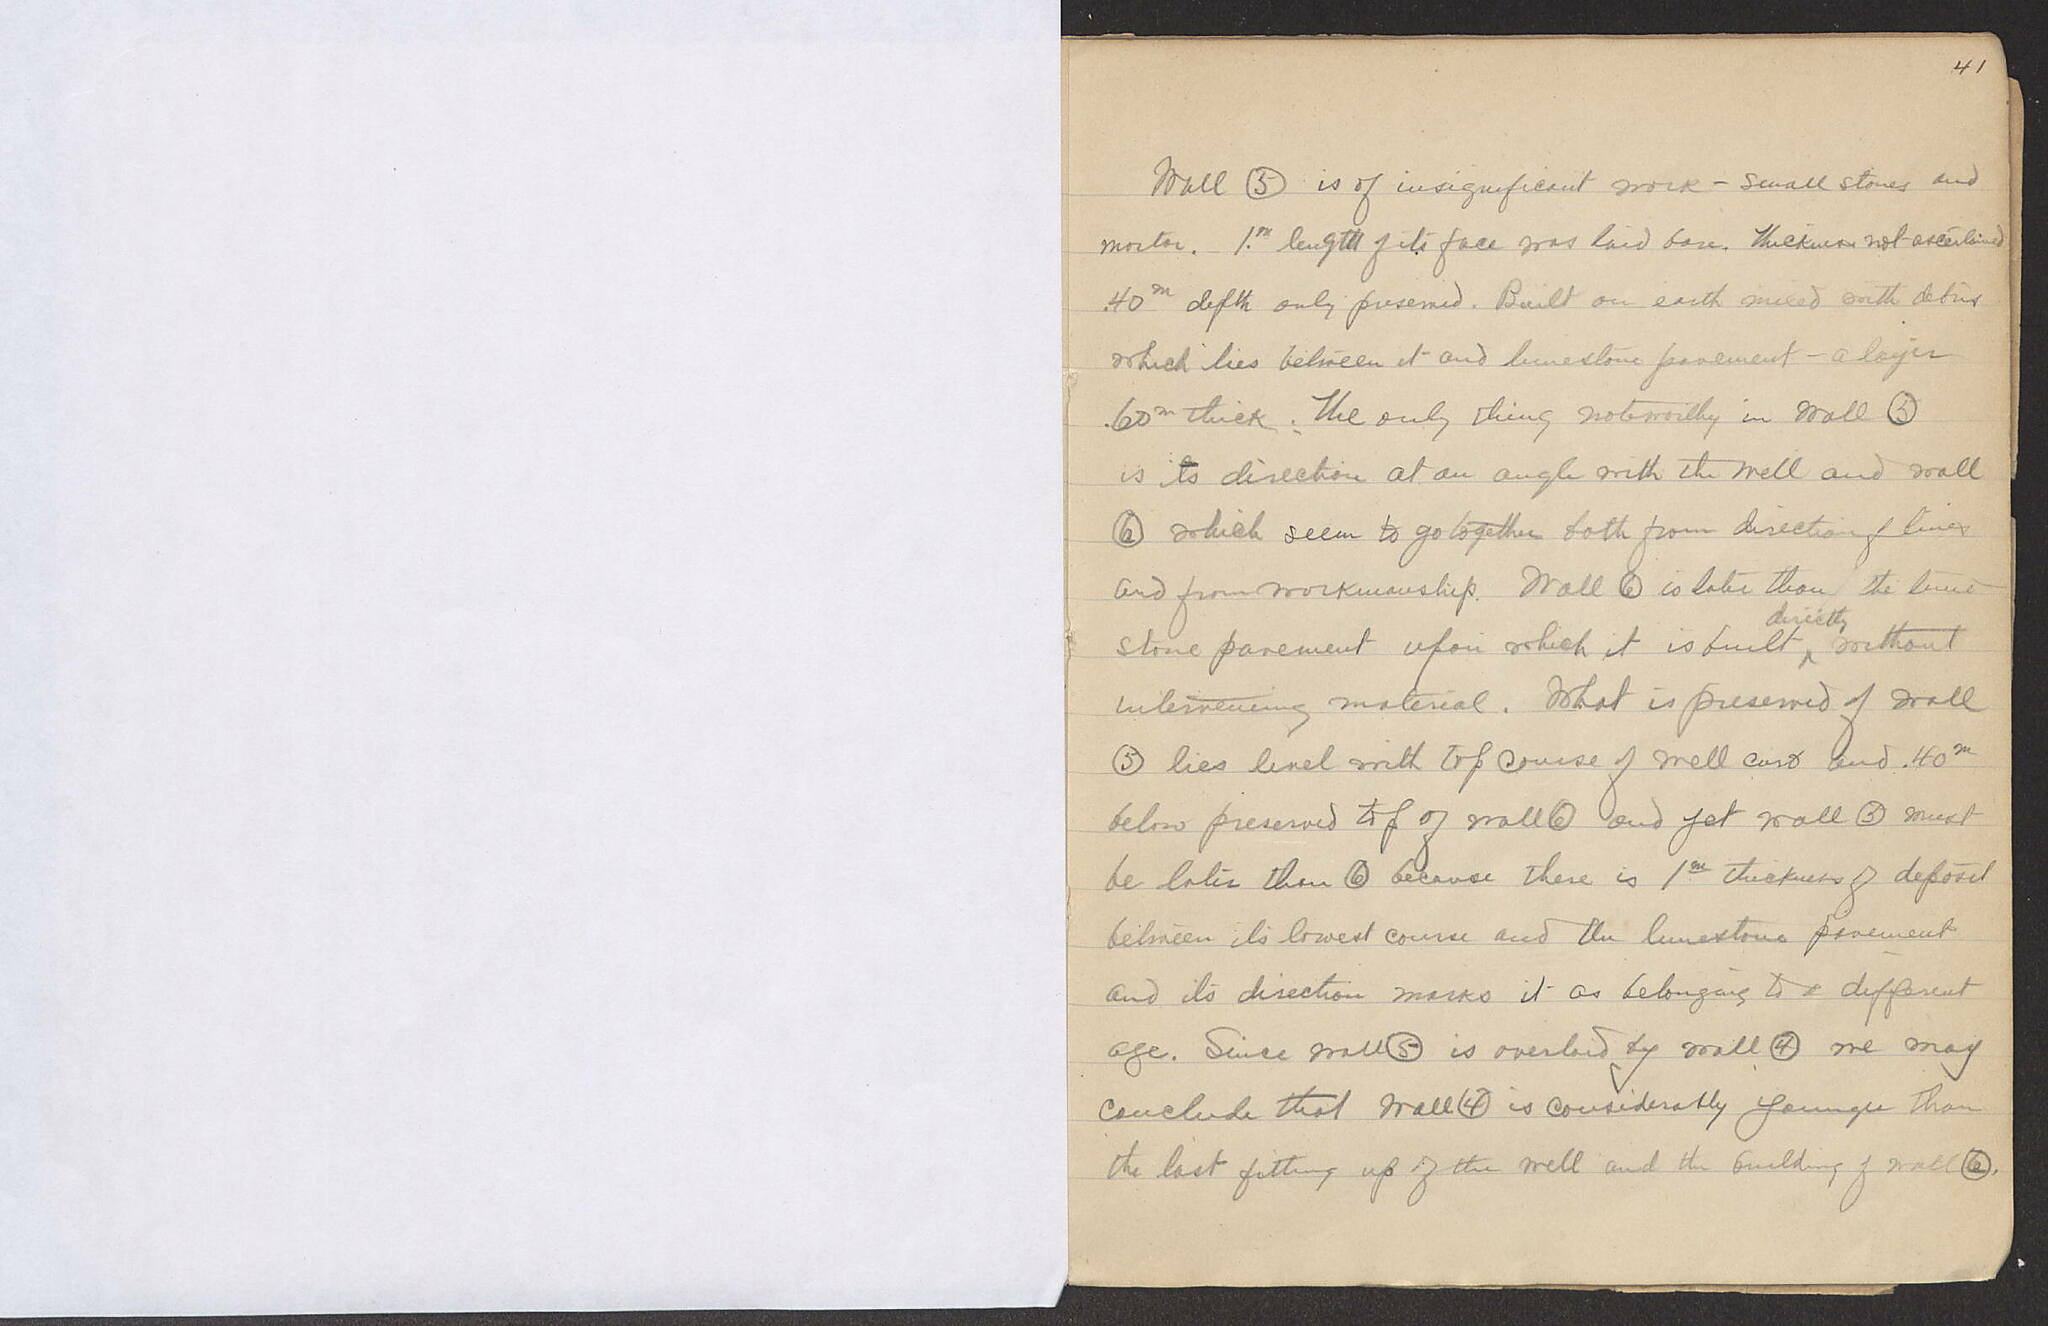 41
Wall ⑤ is of insignificant work – small stones and
mortar. – 1.m length of its face was laid bare. Thickness not ascertained
.40m depth only preserved. Built on earth mixed with debris
which lies between it and limestone pavement – a layer
.60m thick. The only thing noteworthy in Wall ⑤
is its direction at an angle with the Well and wall
⑥ which seem to go together both from direction of lines
and from workmanship. Wall ⑥ is later than the lime-
directly
stone pavement upon which it is built ‸ without
intervening material. What is preserved of wall
⑤ lies level with top course of well and .40m
below preserved top of wall ⑥ and yet wall ⑤ must
be later than ⑥ because there is 1m thickness of deposit
between its lowest course and the limestone pavement
and its direction marks it as belonging to a different
age. Since wall ⑤ is overlaid by wall ④ we may
conclude that Wall ④ is considerably younger than
the last fitting up of the well and the building of wall ⑥.